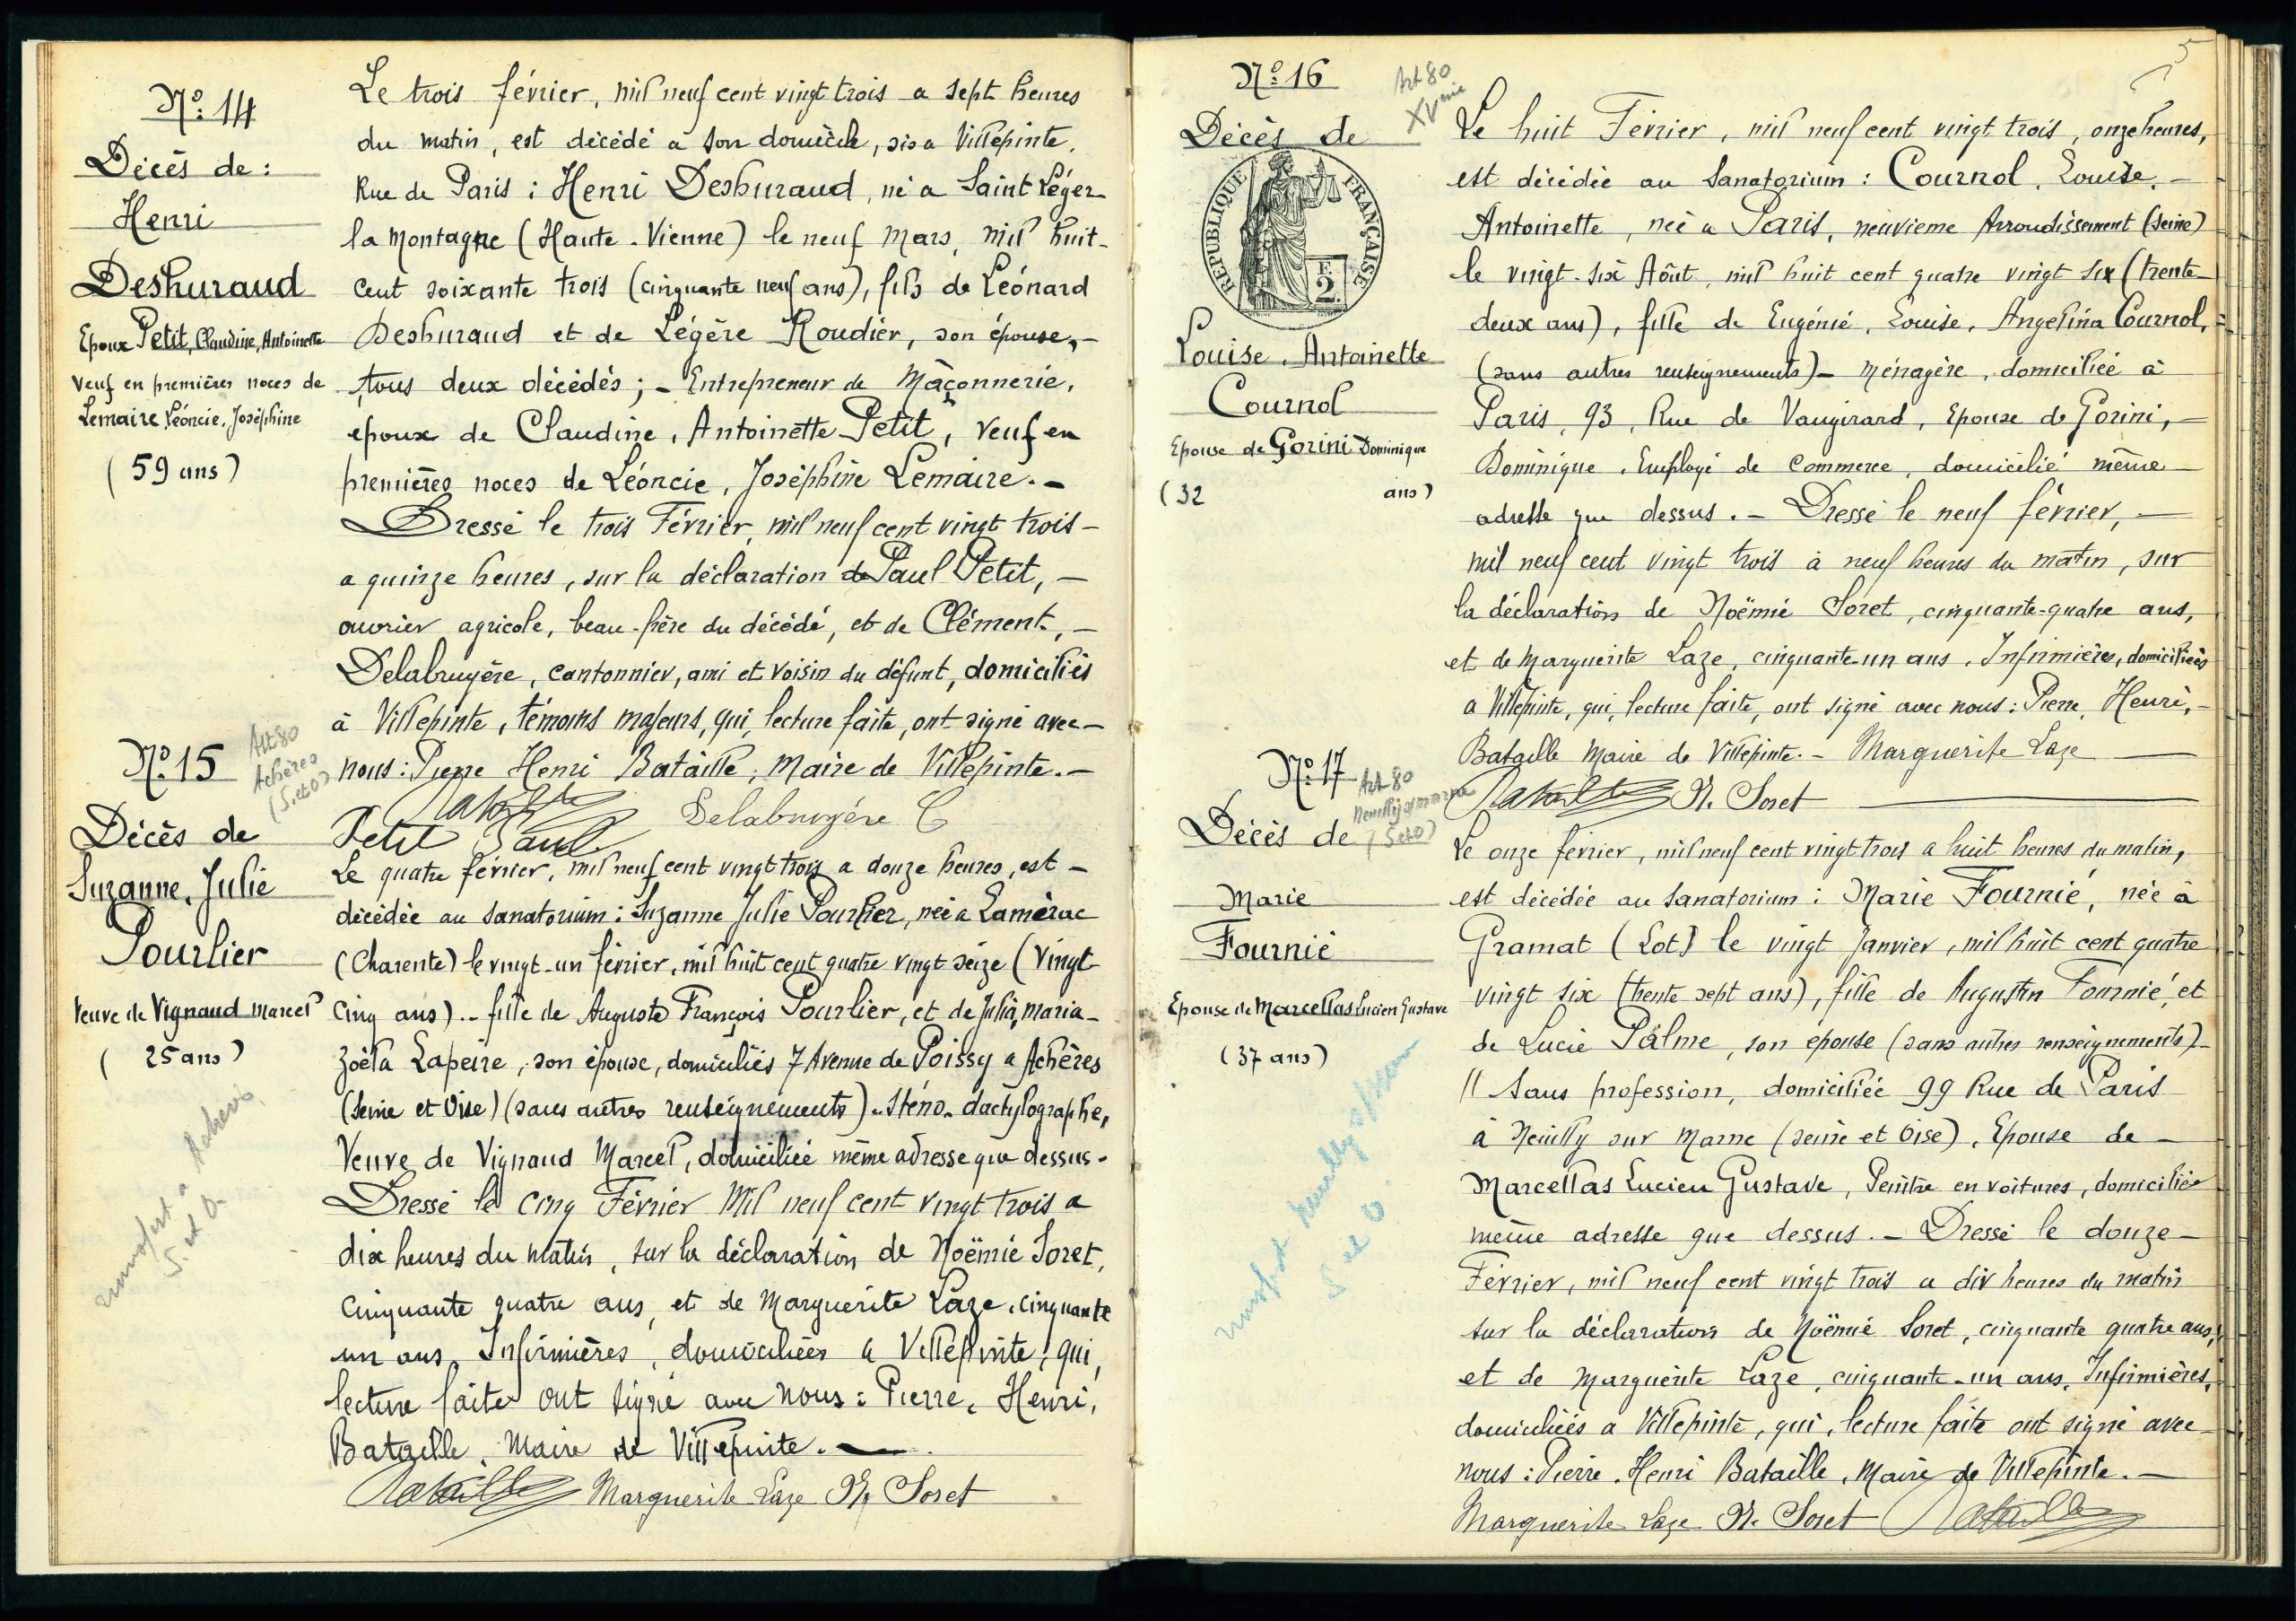 Nº 14
Décès de :
Henri
Deshuraud
Epoux Petit, Claudine, Antoinette
Veuf en premières noces de
Lemaire Léoncie, Joséphine
(59 ans)
Le trois février, mil neuf cent vingt trois a sept heures
du matin, est décédé a son domicile, sis a Villepinte,
Rue de Paris : Henri Deshuraud, né a Saint Léger
la Montagne (Haute-Vienne) le neuf Mars, mil huit-
cent soixante trois (cinquante neuf ans), fils de Léonard
Deshuraud et de Légère Roudier, son épouse, -
tous deux décédés ; - Entrepreneur de Maçonnerie,
epoux de Claudine, Antoinette Petit, Veuf en
premières noces de Léoncie, Joséphine Lemaire. -
Dressé le trois Février, mil neuf cent vingt trois -
a quinze heures, sur la déclaration de Paul Petit, -
ouvrier agricole, beau-frère du décédé, et de Clément, -
Delabruyère, cantonnier, ami et voisin du défunt, domiciliés
à Villepinte, témoins majeurs, qui, lecture faite, ont signé avec -
nous : Pierre Henri Bataille, Maire de Villepinte. -
Bataille Delabruyère C
Petit Paul
Nº 15
Art 80
Achères
(S. et O)
Décès de
Suzanne, Julie
Pourlier
Veuve de Vignaud Marcel
( 25 ans )
transfert a Achères
S. et O
Le quatre février, mil neuf cent vingt trois a douze heures, est -
décédée au sanatorium : Suzanne Julie Pourlier, née a Lamérac
(Charente) le vingt-un février, mil huit cent quatre vingt seize (Vingt
cinq ans). - fille de Auguste François Pourlier, et de Julia, Maria -
Zoëla Lapeire, son épouse, domiciliés 7 Avenue de Poissy a Achères
(Seine et Oise) (sans autres renseignements) - Sténo-dactylographe,
Veuve de Vignaud Marcel, domiciliée même adresse que dessus -
Dressé le cinq Février Mil neuf cent vingt trois a
dix heures du matin, sur la déclaration de Noëmie Soret,
cinquante quatre ans, et de Marguerite Laze, cinquante
un ans, Infirmières, domiciliées a Villepinte, qui,
lecture faite ont signé avec nous : Pierre, Henri,
Bataille, Maire de Villepinte. -
Bataille Marguerite Laze N. Soret
5
Nº 16
Art 80
XVme
Décès de
REPUBLIQUE FRANÇAISE
F.
2.
Louise, Antoinette
Cournol
Epouse de Gorini Dominique
(32 ans)
Le huit Février, mil neuf cent vingt trois, onze heures,
est décédée au Sanatorium : Cournol, Louise, -
Antoinette, née a Paris, neuvieme Arrondissement (Seine)
le vingt-six Août, mil huit cent quatre vingt six (trente-
deux ans), fille de Eugénie, Louise, Angelina Cournol, =
(sans autres renseignements) - ménagère, domiciliée à
Paris, 93, Rue de Vaugirard, Epouse de Gorini, -
Dominique, Employé de Commerce, domicilié même -
adresse que dessus. - Dressé le neuf février, -
mil neuf cent vingt trois à neuf heures du matin, sur
la déclaration de Noëmie Soret, cinquante-quatre ans,
et de Marguerite Laze, cinquante-un ans, Infirmières, domiciliées
a Villepinte, qui, lecture faite, ont signé avec nous : Pierre, Henri, -
Bataille Maire de Villepinte. - Marguerite Laze
Bataille N. Soret
Nº 17
Art 80
Neuilly s/ marne
(S et O)
Décès de
Marie
Fournié
Epouse de Marcellas Lucien Gustave
(37 ans)
transfert Neuilly s/ Marne
S et O.
Le onze février, mil neuf cent vingt trois a huit heures du matin,
est décédée au Sanatorium : Marie Fournié, née à
Gramat (Lot) le vingt Janvier, mil huit cent quatre
vingt six (trente sept ans), fille de Augustin Fournié, et
de Lucie Palme, son épouse (sans autres renseignements) -
// Sans profession, domiciliée 99 Rue de Paris
à Neuilly sur Marne (Seine et Oise), Epouse de -
Marcellas Lucien Gustave, Peintre en voitures, domicilié
même adresse que dessus. - Dressé le douze -
Février, mil neuf cent vingt trois a dix heures du matin
sur la déclaration de Noëmie Soret, cinquante quatre ans,
et de Marguerite Laze, cinquante-un ans, Infirmières,
domiciliées a Villepinte, qui, lecture faite ont signé avec -
nous : Pierre, Henri Bataille, Maire de Villepinte. -
Marguerite Laze N. Soret Bataille